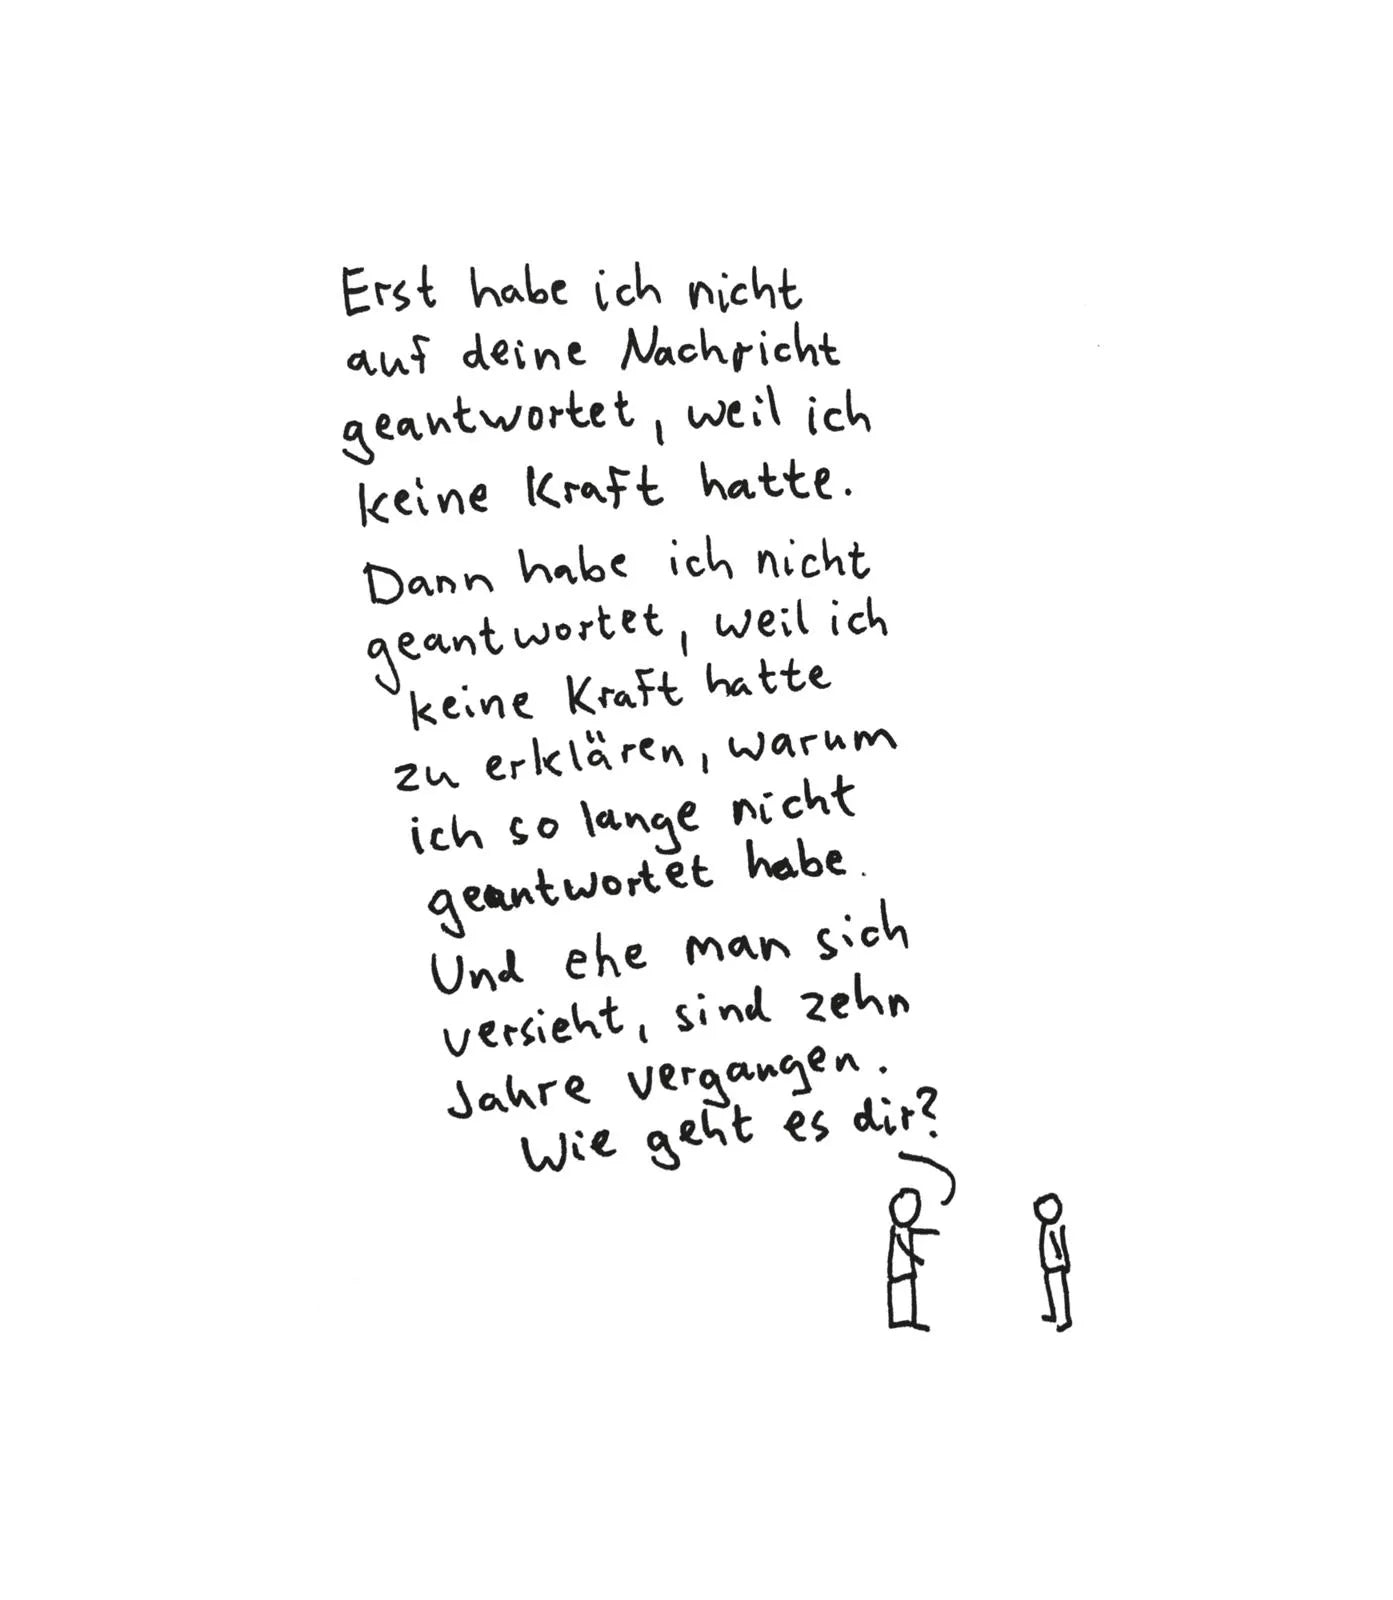 Erst habe ich nicht
auf deine Nachricht
geantwortet, weil ich
keine Kraft hatte.
Dann habe ich nicht
geantwortet, weil ich
keine Kraft hatte
zu erklären, warum
ich so lange nicht
geantwortet habe.
Und ehe man sich
versieht, sind zehn
Jahre vergangen.
Wie geht es dir?